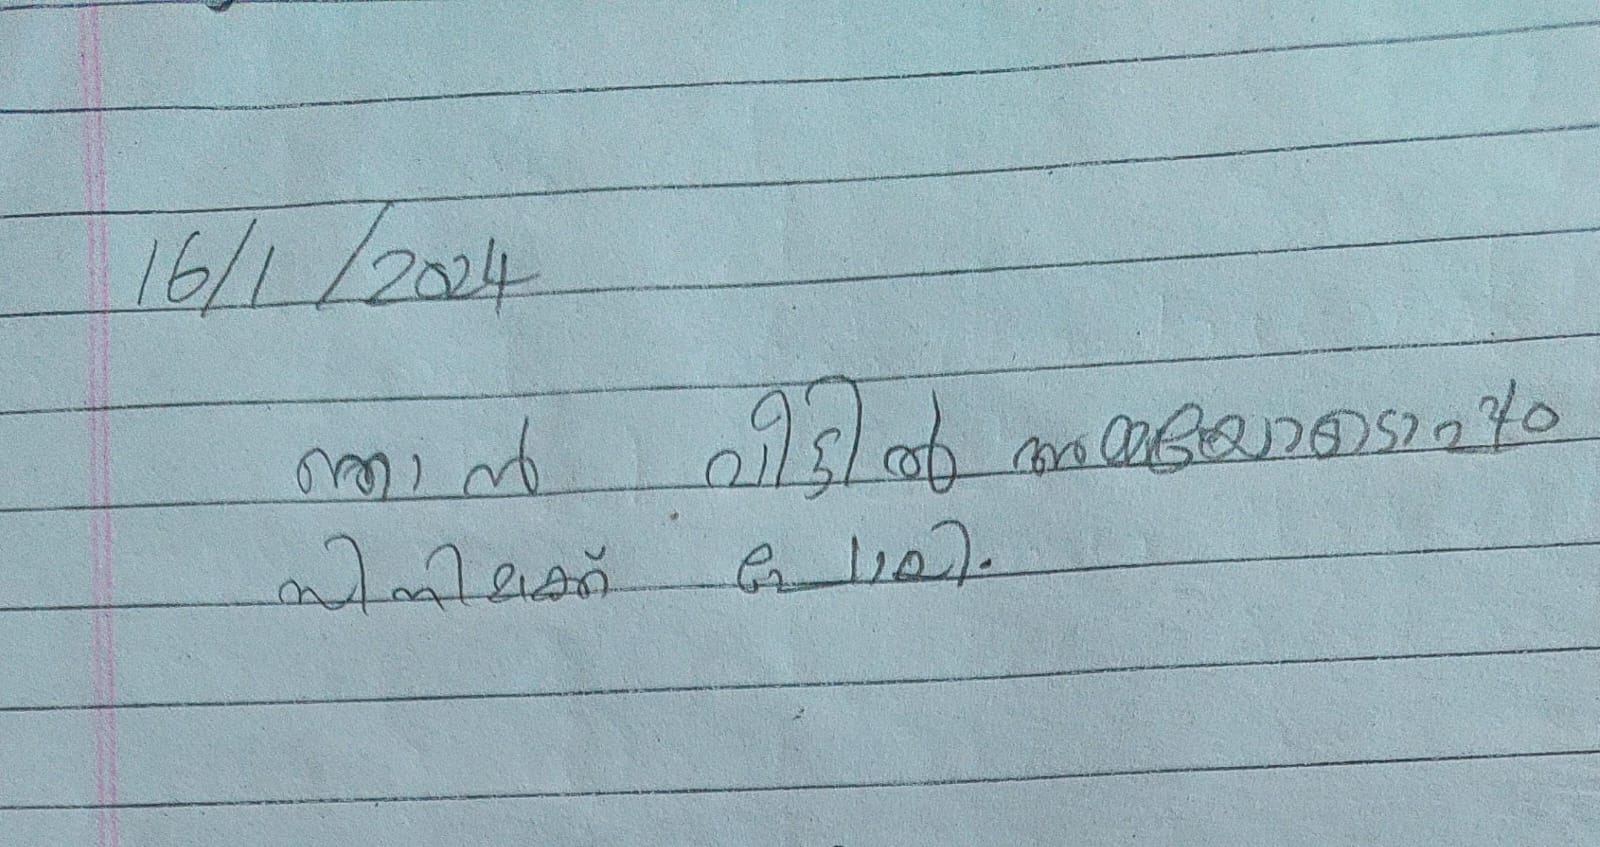 16/1/2024
ഞാൻ വീട്ടിൽ അമ്മയോടൊപ്പം
സിനിമക്ക് പോയി.